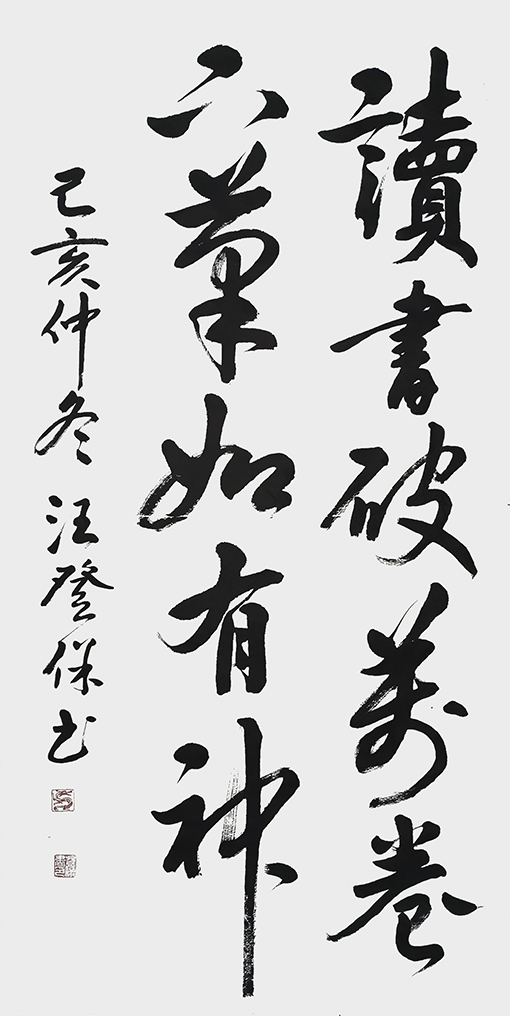 讀書破萬卷
下筆如有神
己亥仲冬 汪登保书